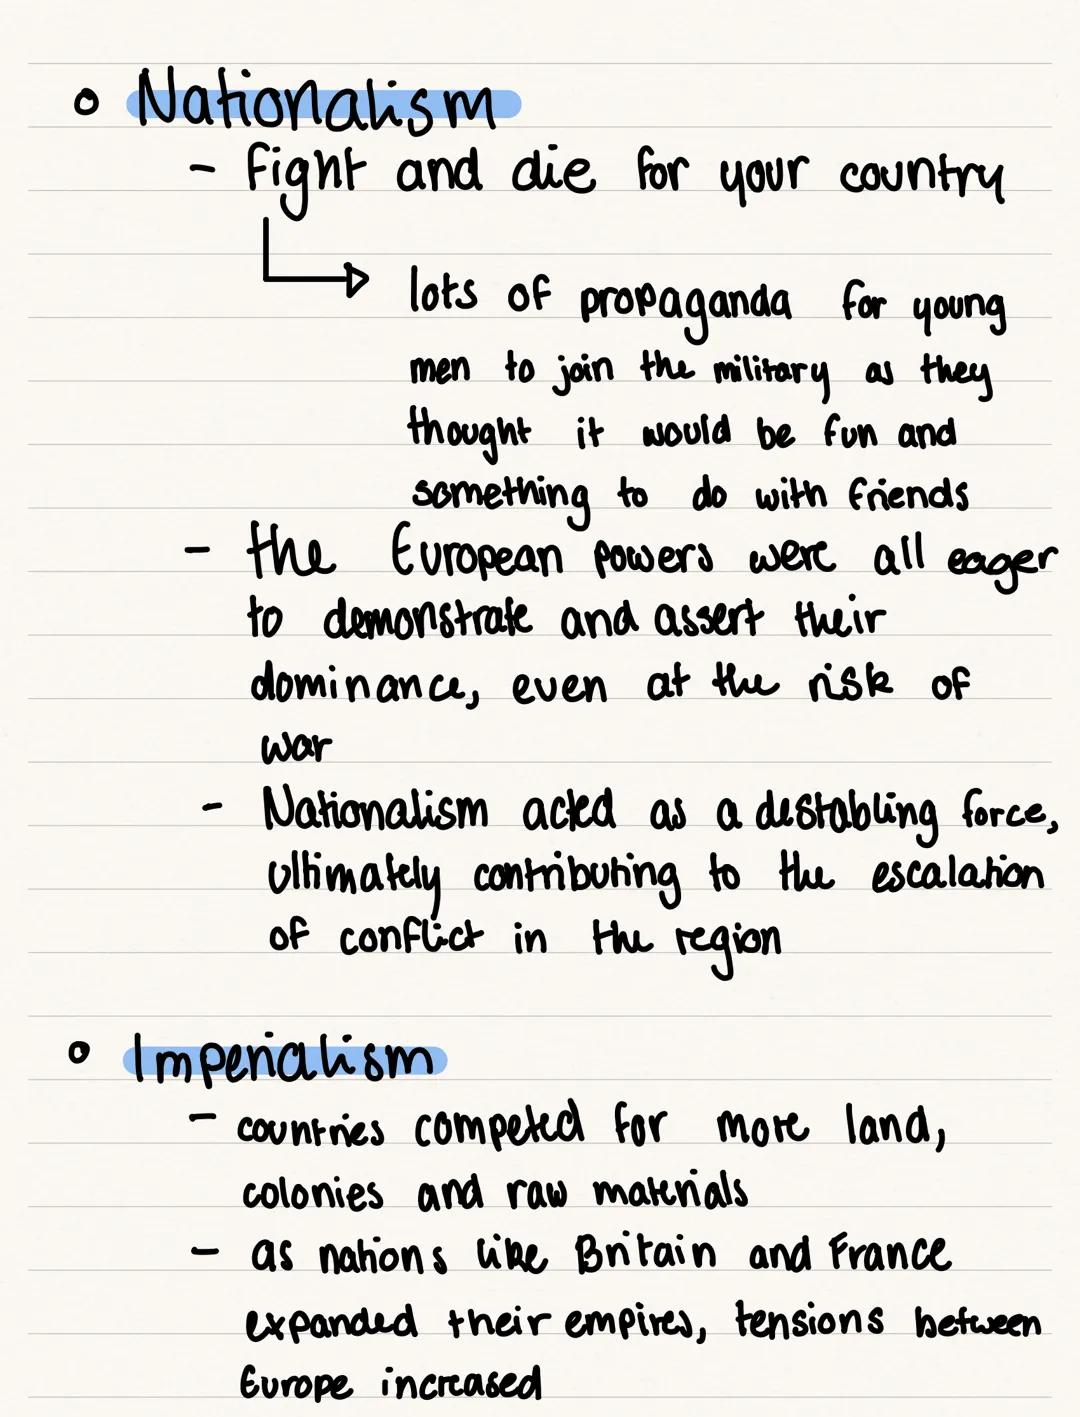 Nationalism
- Fight and die for your country
lots of propaganda for young
men to join the military as they
thought it would be fun and
something to do with friends
- the European powers were all eager
to demonstrate and assert their
dominance, even at the risk of
war
- Nationalism acted as a destabling force,
ultimately contributing to the escalation
of conflict in the region
Imperialism
- countries competed for more land,
colonies and raw materials
- as nations like Britain and France
expanded their empires, tensions between
Europe increased